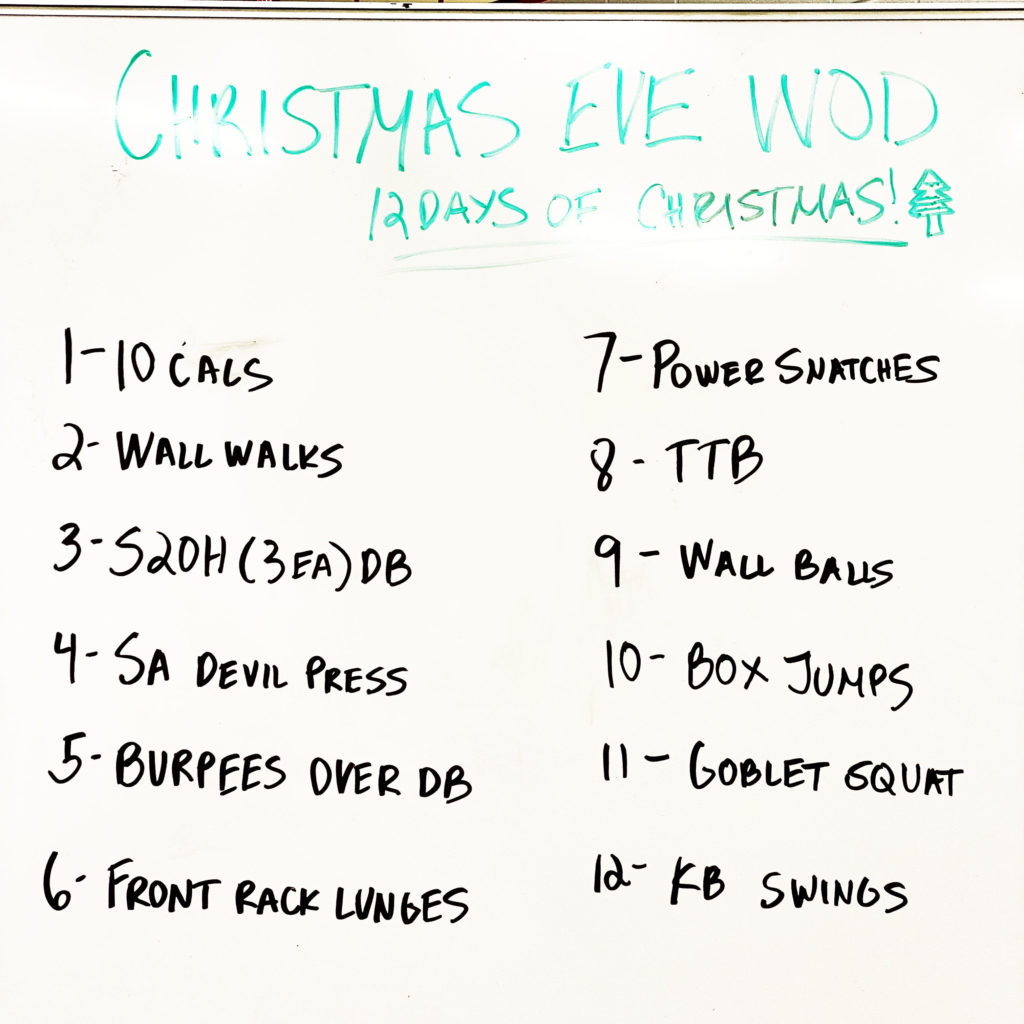 CHRISTMAS EVE WOD
12 DAYS OF CHRISTMAS!
1-10 CALS
2- WALL WALKS
3- S2OH (3 EA) DB
4- SA DEVIL PRESS
5- BURPEES OVER DB
6- FRONT RACK LUNGES
7- POWER SNATCHES
8 - TTB
9 - WALL BALLS
10- BOX JUMPS
11 - GOBLET SQUAT
12- KB SWINGS